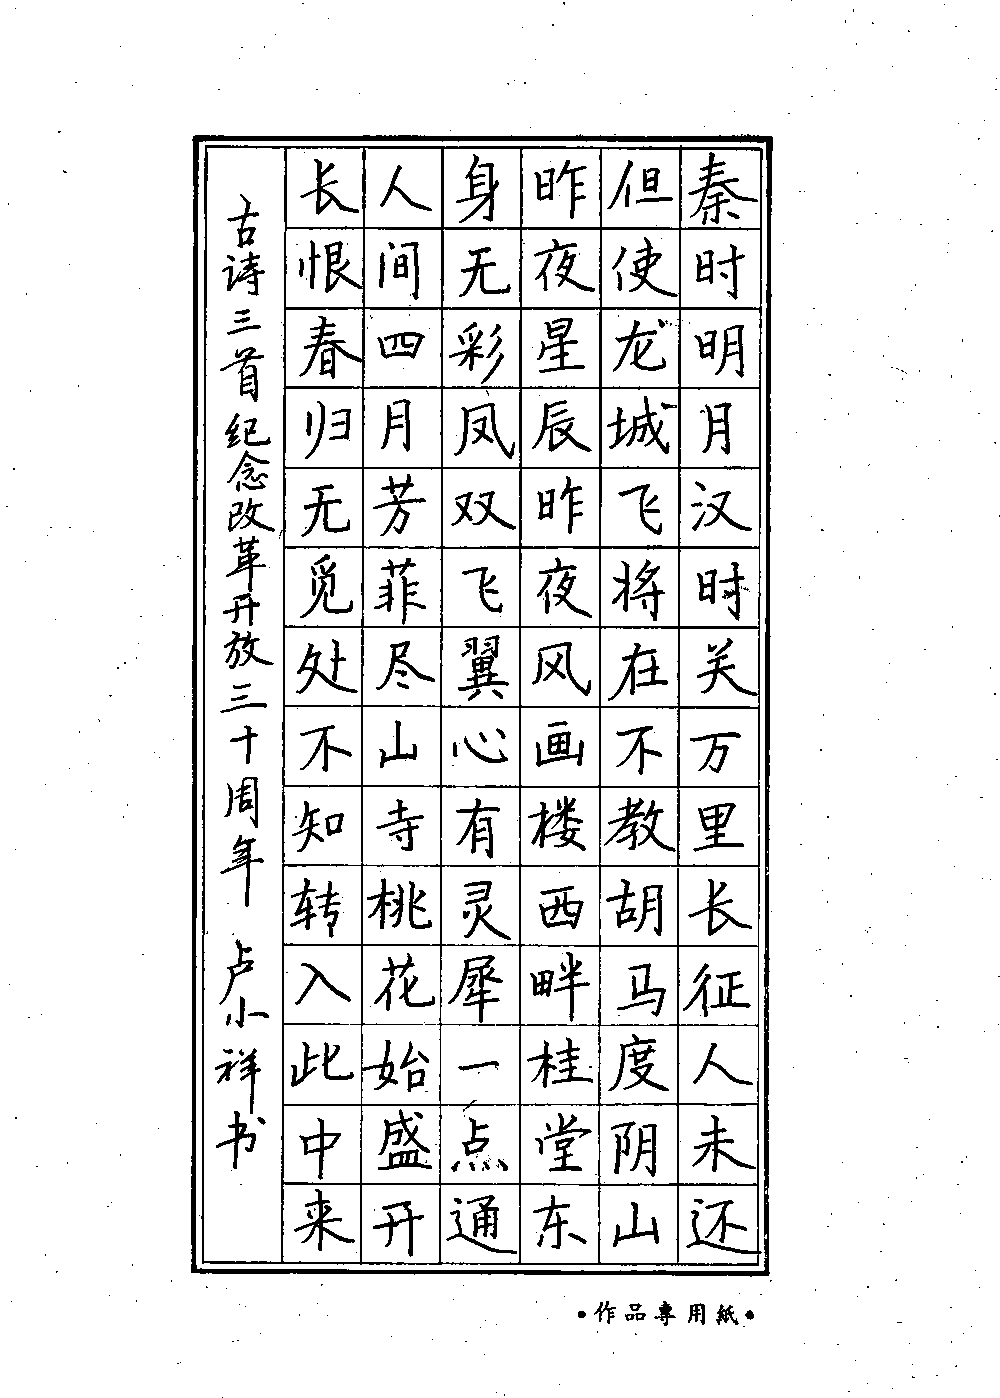 秦时明月汉时关万里长征人未还
但使龙城飞将在不教胡马度阴山
昨夜星辰昨夜风画楼西畔桂堂东
身无彩凤双飞翼心有灵犀一点通
人间四月芳菲尽山寺桃花始盛开
长恨春归无觅处不知转入此中来
古诗三首纪念改革开放三十周年 卢小祥书
·作品專用紙·